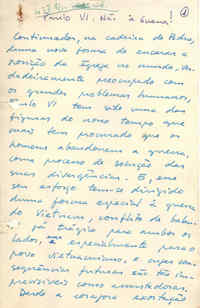 Paulo VI. Não à Guerra!
Continuador, na cadeira de Pedro,
duma nova forma de encarar a
posição da Igreja no mundo, ver-
dadeiramente preocupado com
os grandes problemas humanos,
Paulo VI tem sido uma das
figuras do nosso tempo que
mais tem procurado que os
homens abandonem a guerra,
como processo de solução das
suas divergências. E, em
seu esforço tem-se dirigido
duma forma especial à guerra
do Vietnam, conflito de
já trágico para ambos os
lados, e especialmente para o
povo vietnamiano e cujas con-
sequências futuras são tão im-
previsíveis como assustadoras.
Desde a corajosa exortação